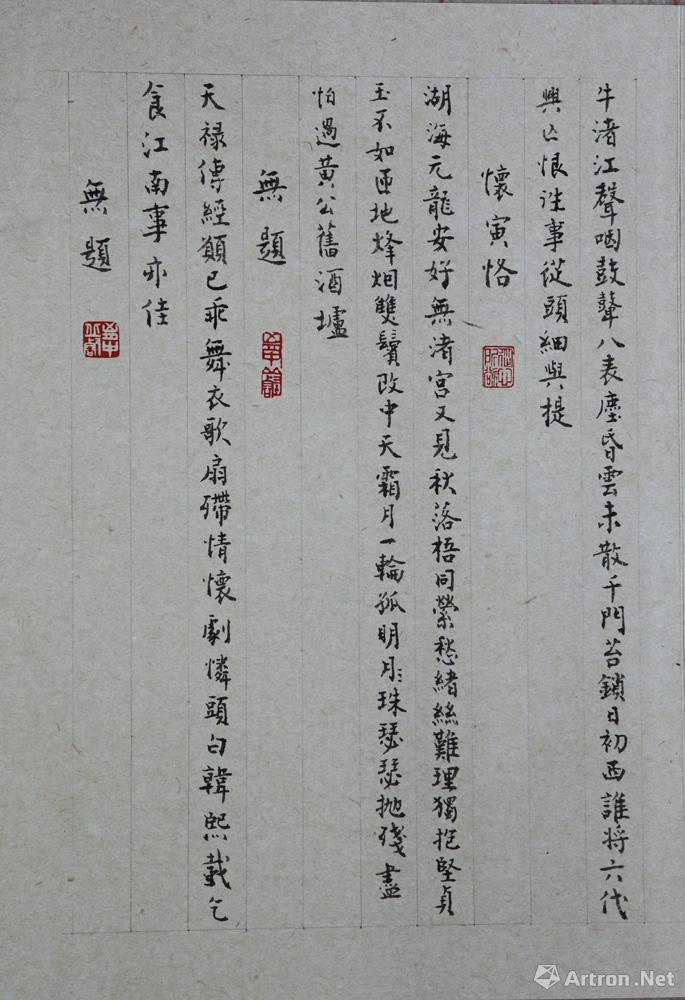 牛渚江聲咽鼓鼙八表塵昏雲未散千門苔鎖日初西誰將六代
興亡恨往事從頭細與提
懷寅恪
湖海元龍安好無渚宮又見秋落梧同縈愁緒絲難理獨抱堅貞
玉不如匝地烽烟雙鬢改中天霜月一輪孤明月珠瑟瑟抛殘盡
怕過黄公舊酒壚
無題
天禄傳經願已乖舞衣歌扇殢情懷劇憐頭白韓熙載乞
食江南事亦佳
無題
Artron.Net